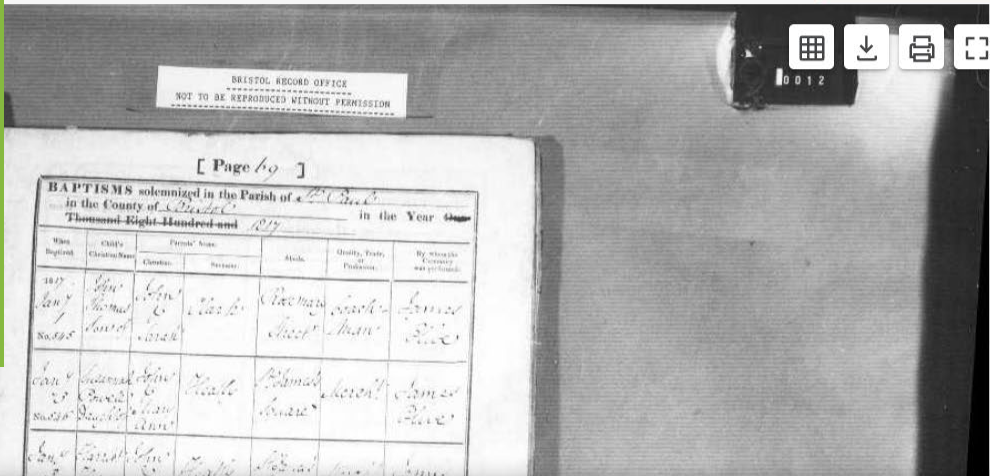 BRISTOL RECORD OFFICE
NOT TO BE REPRODUCED WITHOUT PERMISSION
0012
[ Page 69 ]
BAPTISMS solemnized in the Parish of St. Paul
in the County of Bristol in the Year One
Thousand Eight Hundred and 1817
When Baptized. Child's Christian Name. Parents' Name. Christian. Surname. Abode. Quality, Trade, or Profession. By whom the Ceremony was performed.
1817
Jany
1
No. 545
John
Thomas
Son of
John
&
Sarah
Clark
Rosemary
Street
Coach-
man
James
Jany
No. 546
Susannah
Powell
Daughter
John
&
Mary
Ann
St James's
Square
Mercht
James
Jany
Harriot
John
James